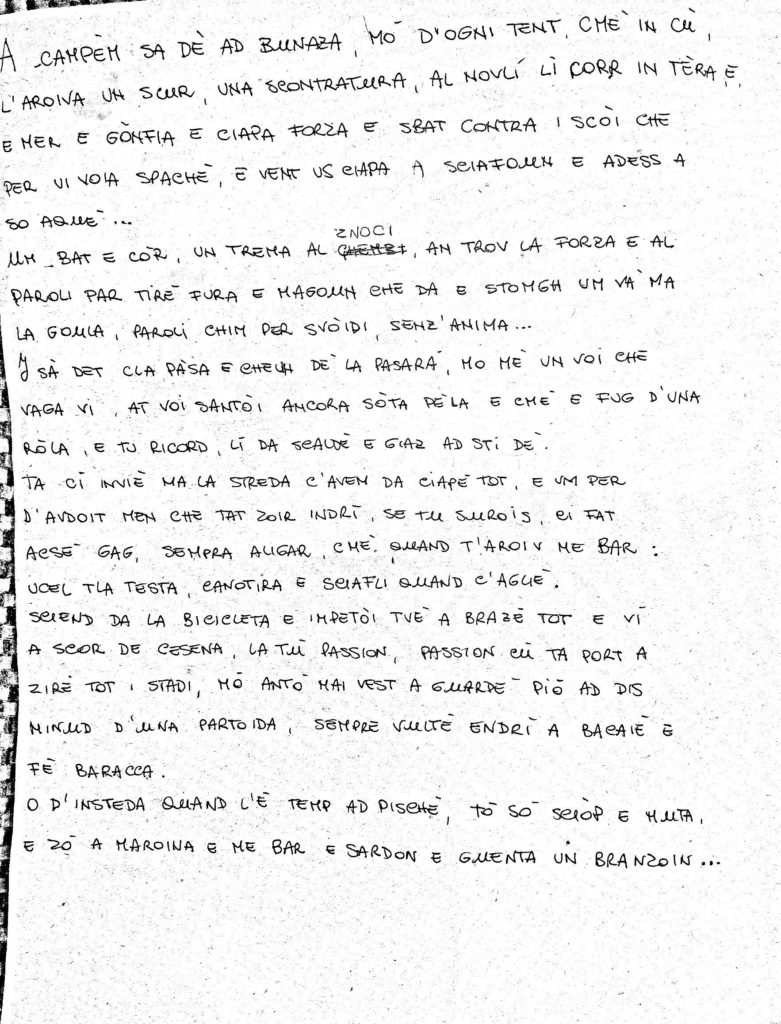 A CAMPÈM SA DÈ AD BUNAZA, MÒ D'OGNI TENT, CMÈ IN CÙ,
L'AROIVA UN SCUR, UNA SCONTRATURA, AL NOVLÌ LÌ CORR IN TÈRA E,
E MER E GÒNFIA E CIAPA FORZA E SBAT CONTRA I SCÒI CHE
PER VI VOIA SPACHÈ, E VENT US CIAPA A SCIAFOUN E ADESS A
SO AQUÈ...
UM BAT E CÒR, UN TREMA AL ZNOCI, AN TROV LA FORZA E AL
PAROLI PAR TIRÈ FURA E MAGOUN CHE DA E STOMGH UM VA MA
LA GOULA, PAROLI CHIM PER SVÒIDI, SENZ'ANIMA...
SÀ DET CLA PÀSA E CHEUN DÈ LA PASARÀ, MO MÈ UN VOI CHE
VAGA VI, AT VOI SANTÒI ANCORA SÒTA PÈLA E CMÈ E FUG D'UNA
RÒLA, E TU RICORD, LÌ DA SCALDÈ E GIAZ AD STI DÈ.
TA CI INVIÈ MA LA STREDA C'AVEM DA CIAPÈ TOT, E UM PER
D'AVDOIT MEN CHE TAT ZOIR INDRÌ, SE TU SUROIS, CI FAT
ACSÈ GAG, SEMPRA ALIGAR, CMÈ QUAND T'AROIV ME BAR:
UCEL TLA TESTA, CANOTIRA E SCIAFLI QUAND C'AGLIÈ.
SCIEND DA LA BICICLETA E IMPETÒI TVÈ A BRAZÈ TOT E VÌ
A SCOR DE CESENA, LA TUÌ PASSION, PASSION CÙ TA PORT A
ZIRÈ TOT I STADI, MÒ ANTÒ MAI VEST A GUARDÈ PIÒ AD DIS
MINUD D'UNA PARTOIDA, SEMPRE VULTÈ ENDRÌ A BACAIÈ E
FÈ BARACCA.
O D'INSTEDA QUAND L'È TEMP AD PISCHÈ, TÒ SÒ SCIÒP E MUTA,
E ZÒ A MAROINA E ME BAR E SARDON E GUENTA UN BRANZOIN...